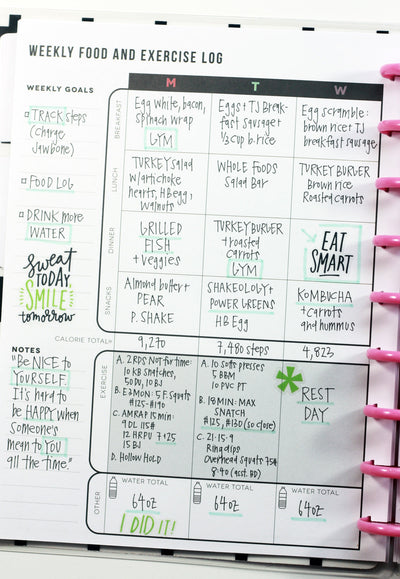 WEEKLY FOOD AND EXERCISE LOG
WEEKLY GOALS
M
T
W
TRACK steps
(charge
Jawbone)
FOOD LOG
DRINK more
WATER
sweat
TODAY
SMILE
tomorrow
BREAKFAST
Egg white, bacon,
spinach wrap
GYM
Eggs + TJ Break-
fast sausage +
1/3 cup b. rice
Egg scramble:
brown rice + TJ
breakfast sausage
LUNCH
TURKEY salad
w/artichoke
hearts, HB egg,
walnuts
WHOLE FOODS
Salad Bar
TURKEY BURGER
Brown rice
Roasted carrots
DINNER
GRILLED
FISH
+ veggies
TURKEY BURGER
+ roasted
carrots
GYM
EAT
SMART
SNACKS
Almond butter +
PEAR
P. SHAKE
SHAKEOLOGY +
POWER GREENS
HB Egg
KOMBUCHA
+ carrots
and hummus
CALORIE TOTAL
9,270
7,480 steps
4,823
NOTES
"Be NICE to
YOURSELF.
It's hard to
be HAPPY when
someone's
mean to YOU
all the time."
EXERCISE
A. 2 RDS Not for time:
10 KB snatches,
50 DU, 10 BJ
B. E3MON: 5 F. squats
#125-#190
C. AMRAP 15 min:
9 DL 115#
12 HRPU 7+25
15 BJ
D. Hollow Hold
A. 10 sotts presses
5 BBM
10 PVC PT
B. 18 MIN: MAX
SNATCH
#125, #130 (so close)
C. 21-15-9
Ring dips
Overhead squats 75#
8:40 (asst. BD)
REST
DAY
OTHER
WATER TOTAL
64oz
I DID IT!
WATER TOTAL
64oz
WATER TOTAL
64oz